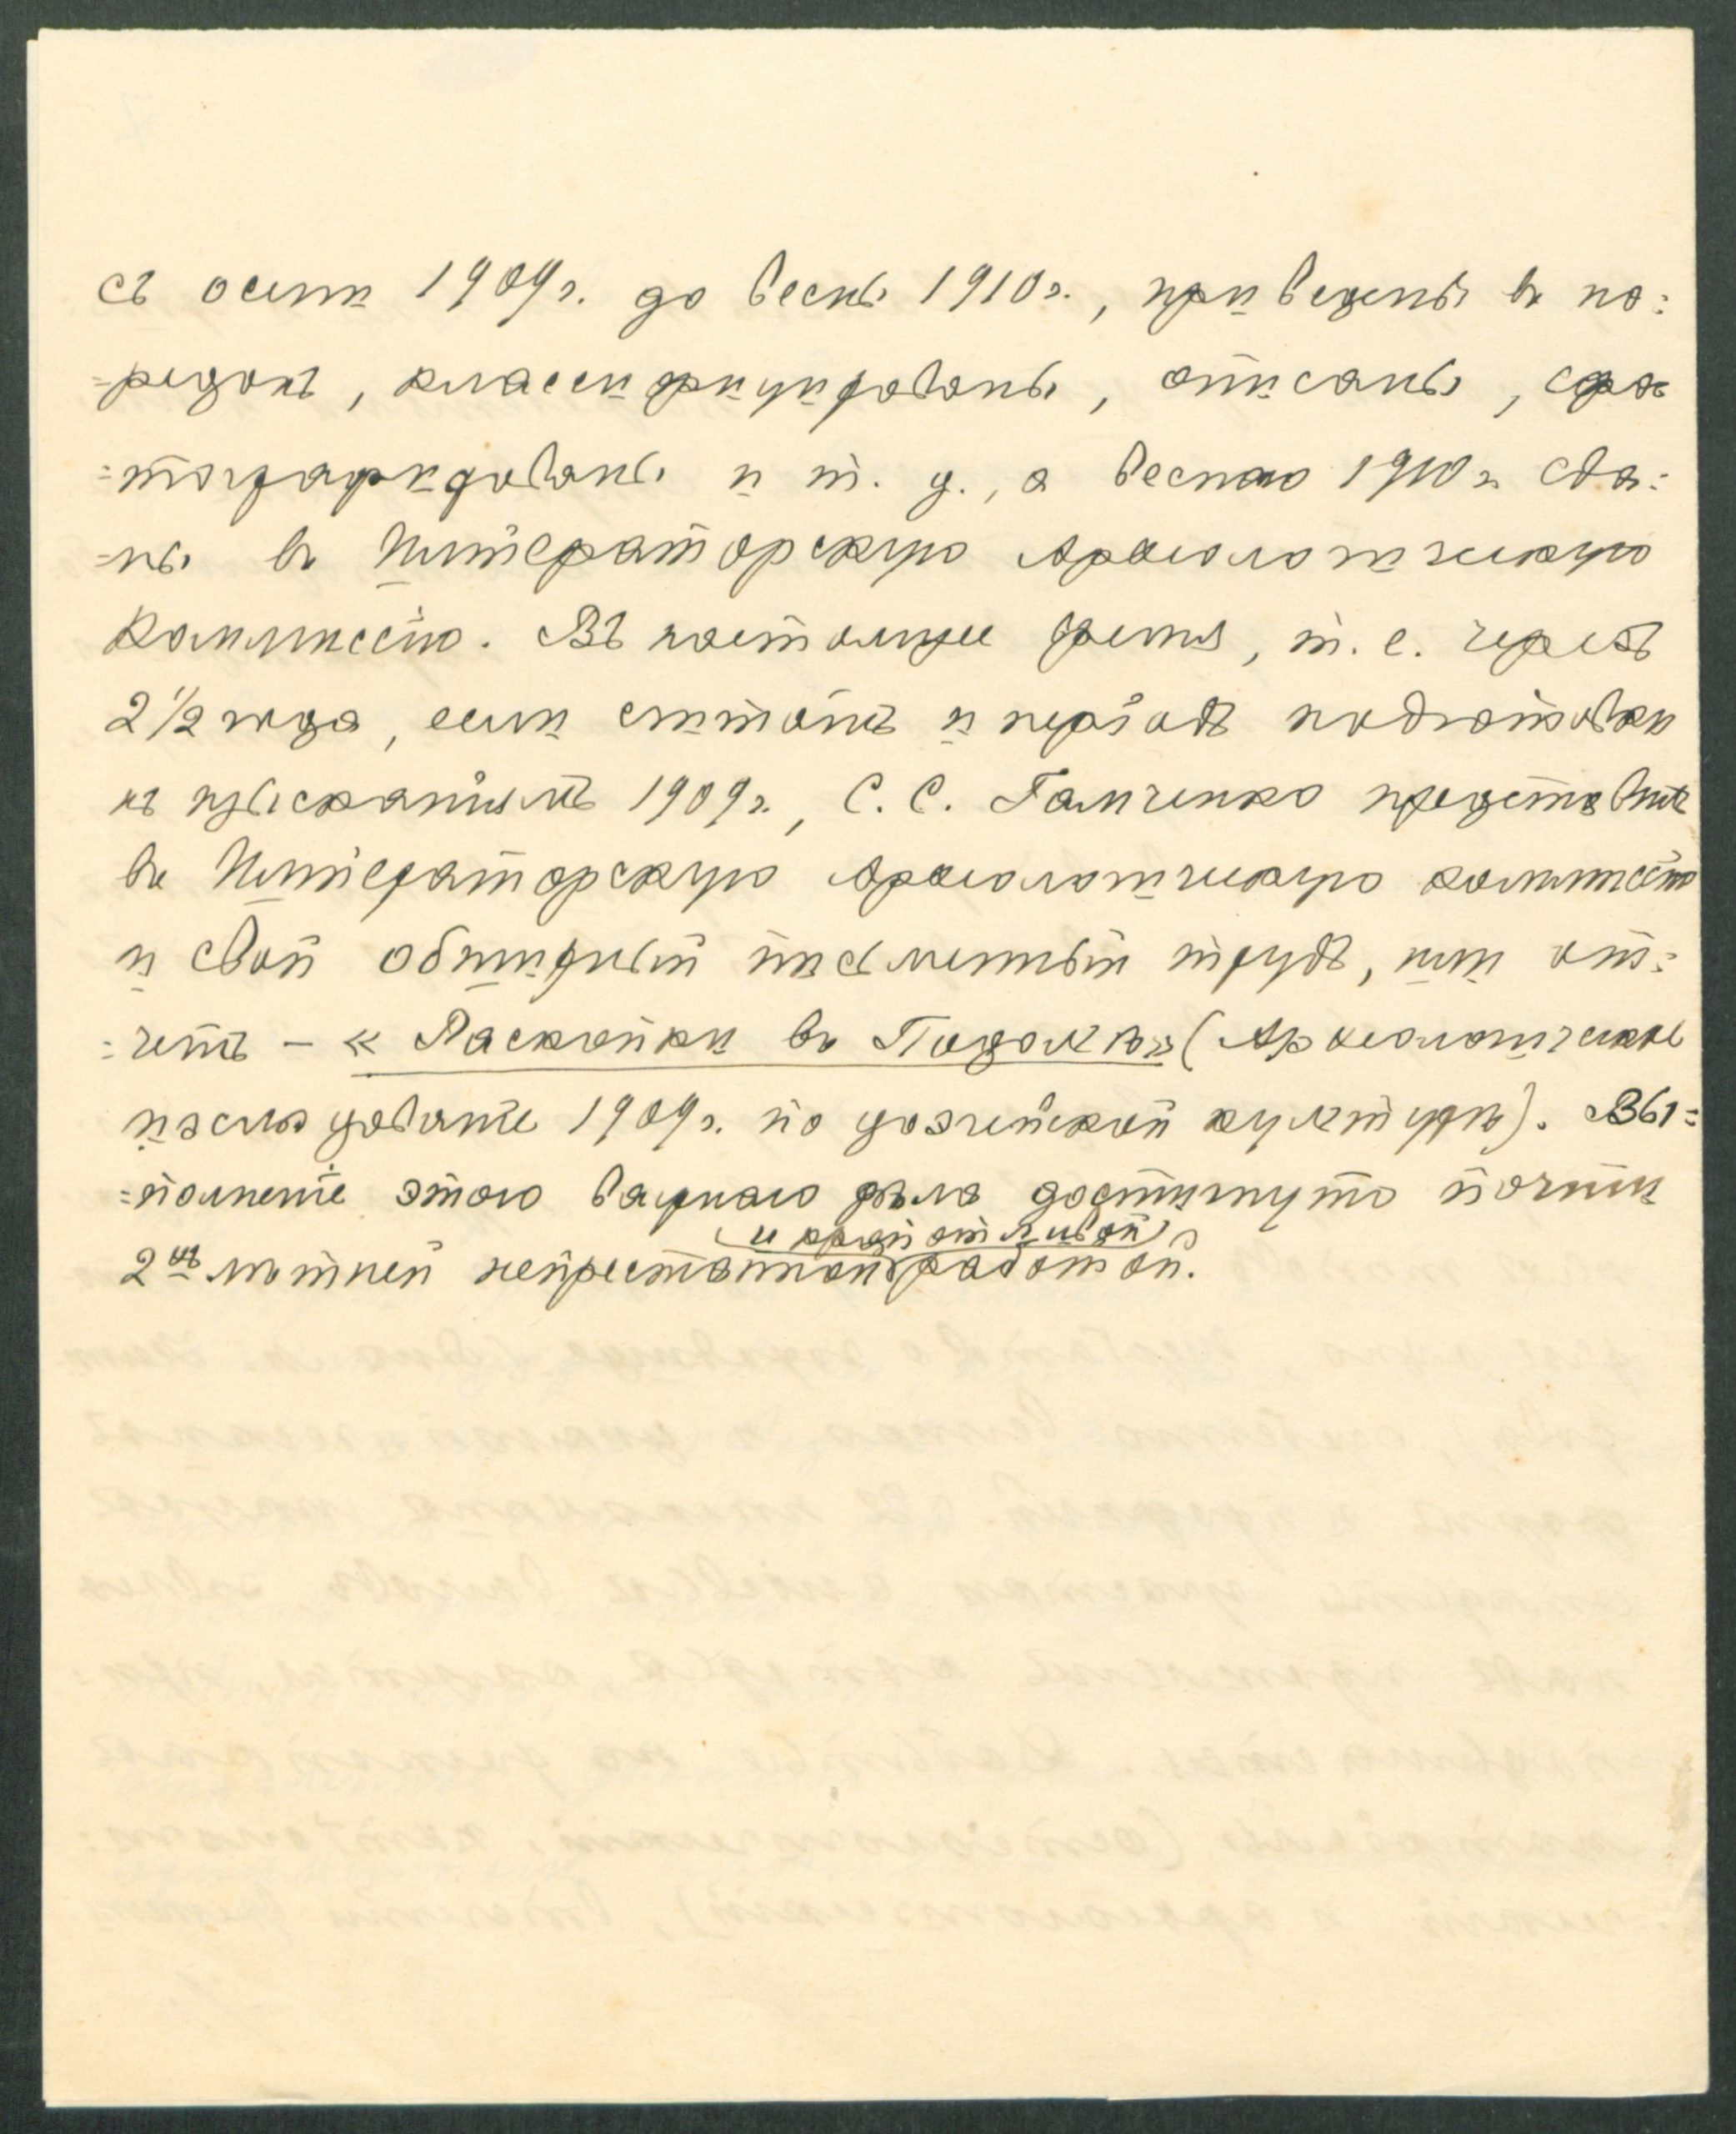 съ осени 1909 г. до весны 1910 г., приведены въ по=
=рядокъ, классифицированы, описаны, сфо=
=тографированы и т. д., а весною 1910 г. сда=
=ны въ Императорскую Археологическую
Коммиссію. Въ настоящее время, т. е. черезъ
2 1/2 года, если считать и періодъ подготовки
къ изысканіямъ 1909 г., С. С. Гамченко представилъ
въ Императорскую Археологическую коммиссію
и свой обширный письменный трудъ, или от=
=четъ – « Раскопки въ Подоліи» (Археологическое
изслѣдованіе 1909 г. по дозлейской культурѣ). Вы=
=полненіе этого важнаго дѣла достигнуто почти
и кропотливой
2хъ лѣтней непрестанной работой.